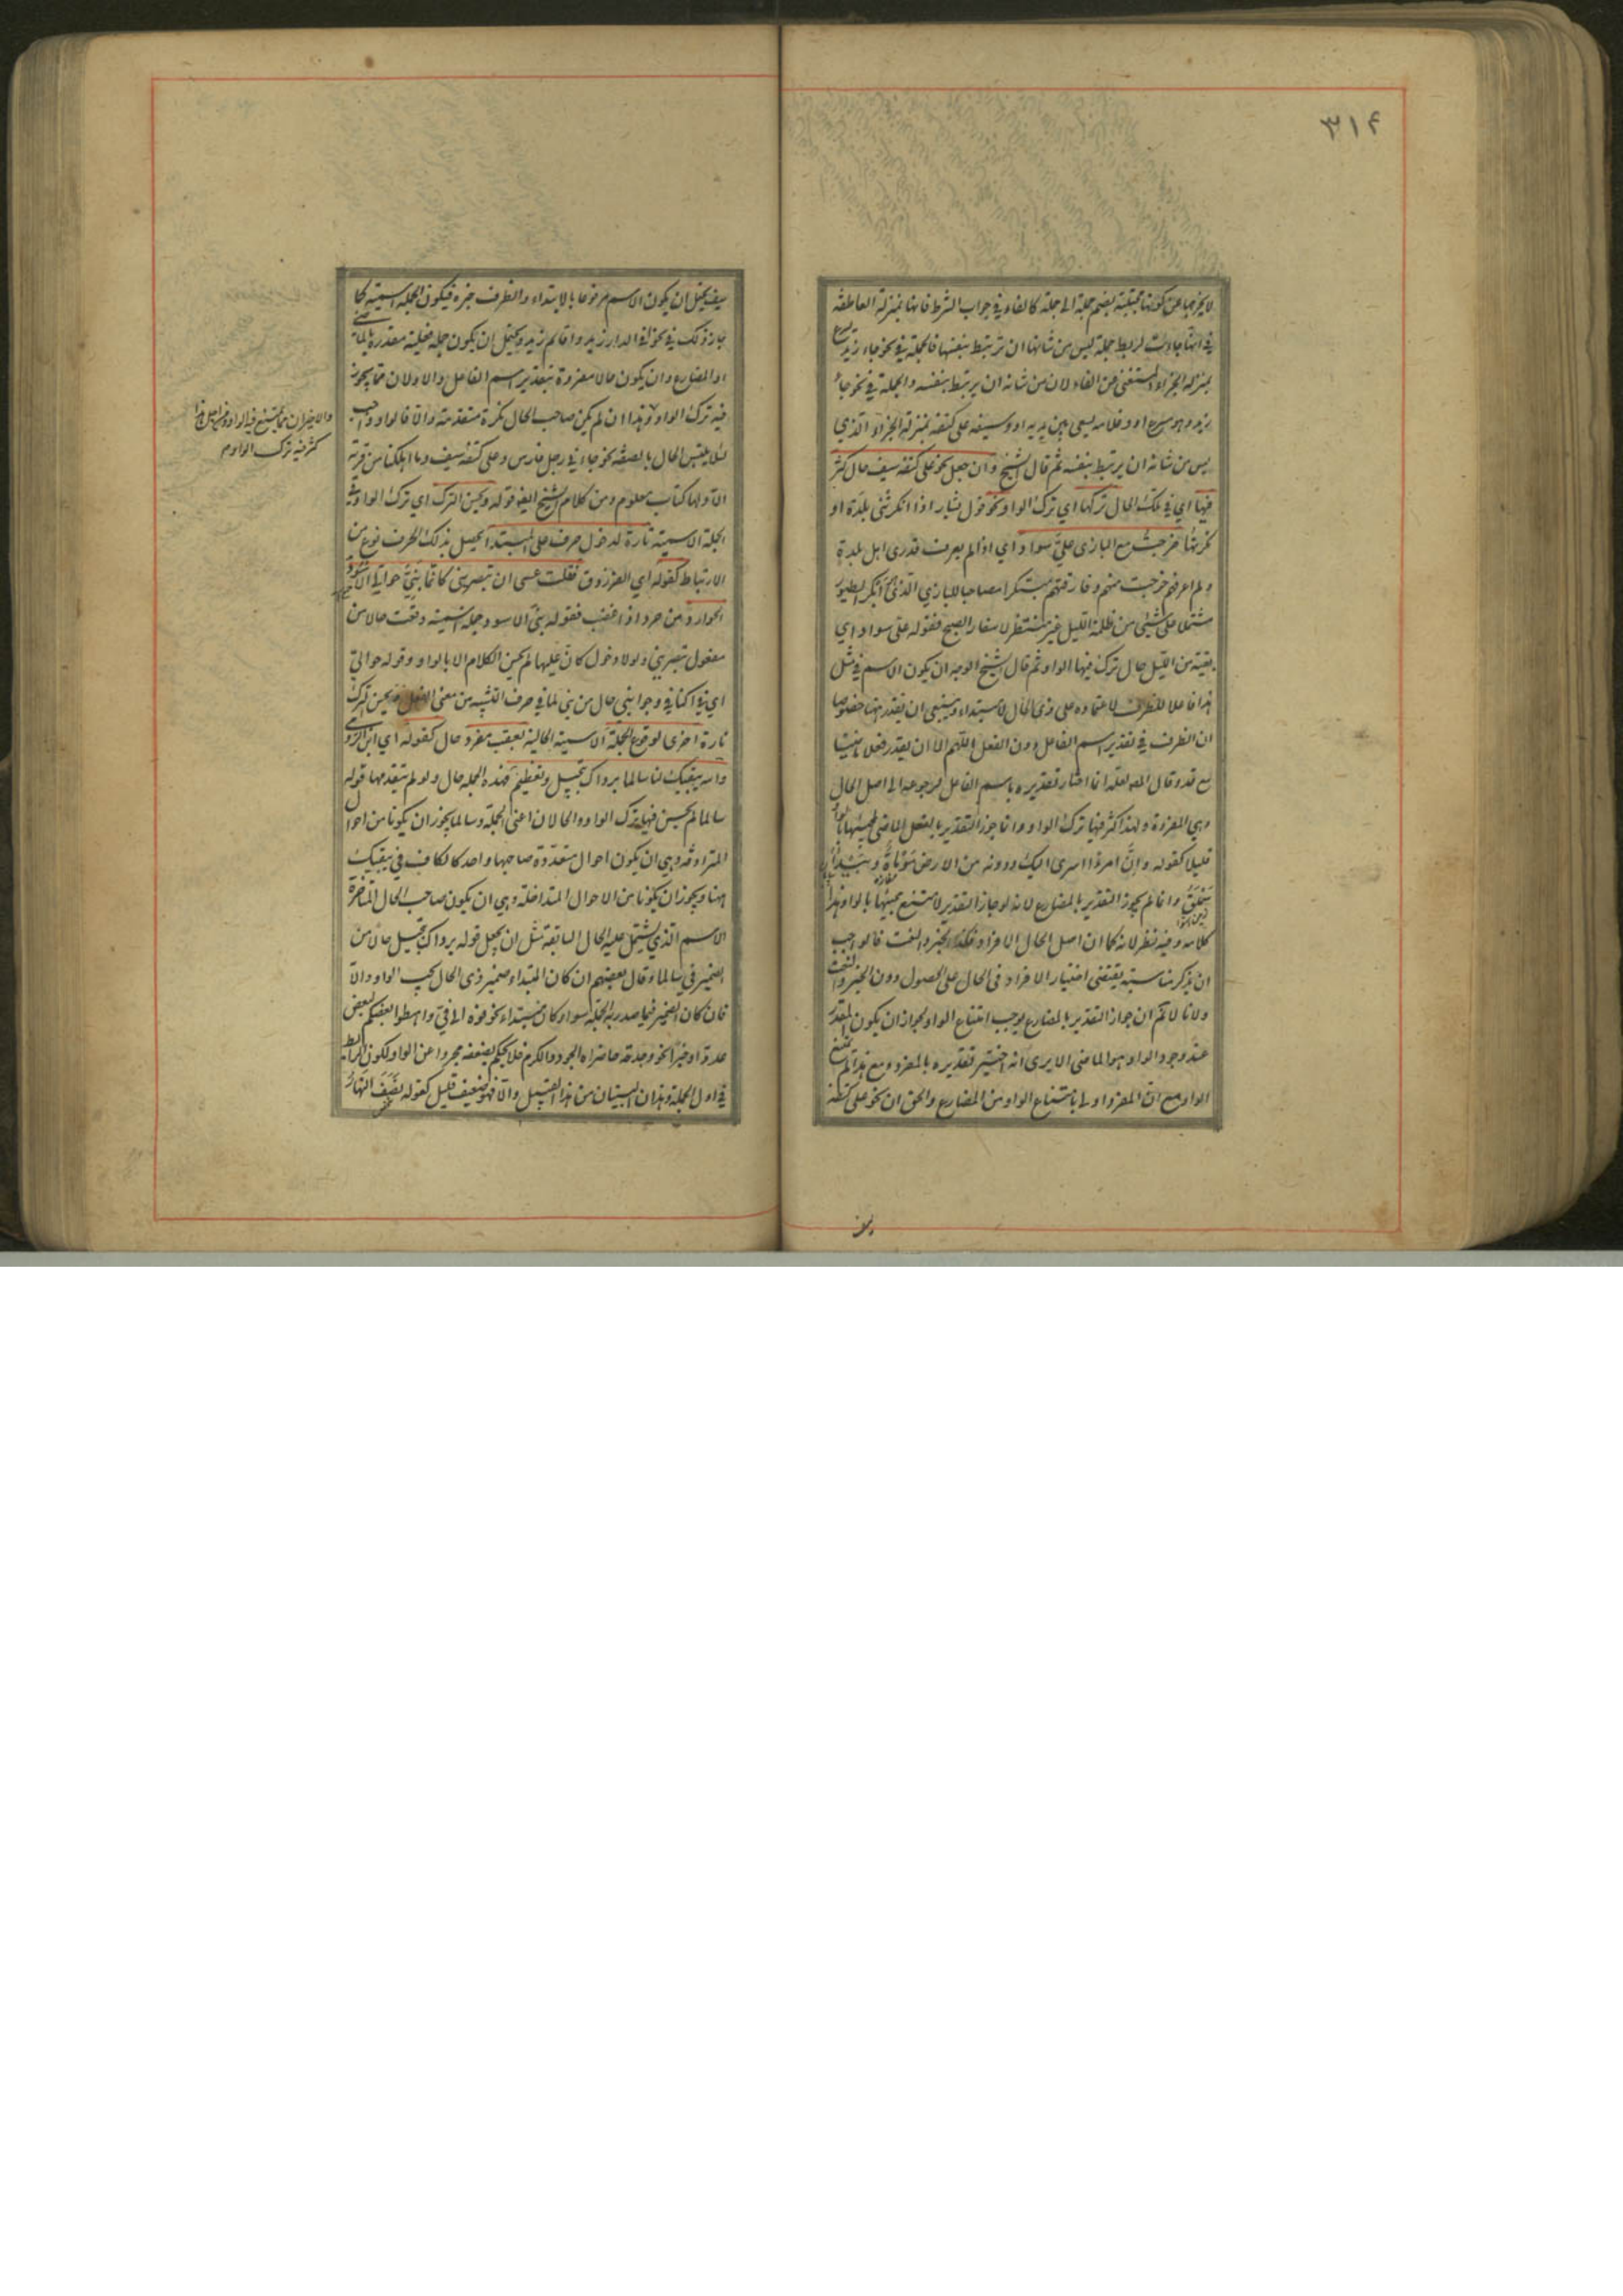 ٣١٤
لا يخرجها عن كونها مجتلبة لضم جملة الى جملة كالفاء في جواب الشرط فانها بمنزلة العاطفة
في انها جاءت لربط جملة ليس من شانها ان ترتبط بنفسها فالجملة في نحو جاء زيد يسرع
بمنزلة الجزاء المستغنى عن الفاء لان من شانه ان يرتبط بنفسه والجملة في نحو جاء
زيد وهو يسرع او وغلامه يسعى بين يديه او وسيفه على كتفه بمنزلة الجزاء الذي
ليس من شانه ان يرتبط بنفسه ثم قال الشيخ وان جعل نحو على كتفه سيف حال كثر
فيها اى في تلك الحال تركها اي ترك الواو نحو قول بشار اذا انكرتنى بلدة او
نكرتها خرجت مع البازى علىّ سواد اي اذا لم يعرف قدرى اهل بلدة
ولم اعرفهم خرجت منهم وفارقتهم مبتكرا مصاحبا للبازي الذى هو ابكر الطيور
مشتملا على شيئ من ظلمة الليل غير منتظر لاسفار الصبح فقوله على سواد اي
بقية من الليل حال ترك فيها الواو ثم قال الشيخ الوجه ان يكون الاسم في مثل
هذا فاعلا للظرف لاعتماده على ذى الحال لا مبتداء وينبغى ان يقدر ههنا خصوصا
ان الظرف في تقدير اسم الفاعل دون الفعل اللهم الا ان يقدر فعل ماض
مع قد وقال المص لعله انما اختار تقديره باسم الفاعل لرجوعه الى اصل الحال
وهي المفردة ولهذا كثر فيها ترك الواو وانما جوز التقدير بالفعل الماضى لمجيئها بالواو
قليلا كقوله وانّ امرءا اسرى اليك ودونه من الارض موماة وبيداء
سملق وانما لم يجوز التقدير بالمضارع لانه لو جاز التقدير لامتنع مجيئها بالواو هذا
كلامه وفيه نظر لانه كما ان اصل الحال الافراد فكذا الخبر والنعت فالواجب
ان يذكر مناسبة يقتضى اختيار الافراد فى الحال على الخصوص دون الخبر والنعت
ولانا لا نم ان جواز التقدير بالمضارع يوجب امتناع الواو لجواز ان يكون المقدر
عند وجود الواو هو الماضى الا يرى انه اختير تقديره بالمفرد ومع هذا لم يمتنع
الواو مع ان المفرد اولى بامتناع الواو من المضارع والحق ان نحو على كتفه
سيف يحتمل ان يكون الاسم مرفوعا بالابتداء والظرف خبره فيكون الجملة اسمية كما
جاز ذلك في نحو في الدار زيد واقائم زيد ويحتمل ان يكون جملة فعلية مقدرة بالماضى
او المضارع وان يكون حالا مفردة بتقدير اسم الفاعل والاولان مما يجوز
فيه ترك الواو وهذا ان لم يكن صاحب الحال نكرة متقدمة والّا فالواو واجب
لئلا يلتبس الحال بالصفة نحو جاءني رجل فارس وعلى كتفه سيف وما اهلكنا من قرية
الا ولها كتاب معلوم ومن كلام الشيخ ايضا قوله ويحسن الترك اي ترك الواو في
الجملة الاسمية تارة لدخول حرف على المبتدا يحصل بذلك الحرف نوع من
الارتباط كقوله اي الفرزدق فقلت عسى ان تبصرينى كانما بنىّ حوالىّ الاسود
الحوارد من حرد اذا غضب فقوله بنىّ الاسود جملة اسمية وقعت حالا من
مفعول تبصريني ولولا دخول كانّ عليها لم يحسن الكلام الا بالواو وقوله حواليّ
اي في اكنافي وجوانبى حال من بنيّ لما في حرف التشبيه من معنى الفعل ويحسن الترك
تارة اخرى لوقوع الجملة الاسمية الحالية بعقب مفرد حال كقوله اي ابن الرومى
والله يبقيك لنا سالما برداك تبجيل وتعظيم فهذه الجملة حال ولو لم يتقدمها قوله
سالما لم يحسن فيها ترك الواو والحالان اعنى الجملة وسالما يجوز ان يكونا من احوال
المترادفة وهي ان يكون احوال متعددة صاحبها واحد كالكاف في يبقيك
ههنا ويجوز ان يكونا من الاحوال المتداخلة وهي ان يكون صاحب الحال المتاخرة
الاسم الذي يشتمل عليه الحال السابقة مثل ان يجعل قوله برداك تبجيل حالا من
الضمير في سالما وقال بعضهم ان كان المبتداء ضمير ذى الحال يجب الواو والا
فان كان الضمير فيما صدر به الجملة سواء كان مبتداء نحو فوه الى فيّ واهبطوا بعضكم لبعض
عدو او خبرا نحو وجدته حاضراه الجود والكرم فلا يحكم بضعفه مجردا عن الواو لكون الرابط
في اول الجملة وهذان البيتان من هذا القبيل والا فهو ضعيف قليل كقوله نصف النهار
والاخيران مما يمتنع فيه الواو فمن اجل هذا
كثر فيه ترك الواو م